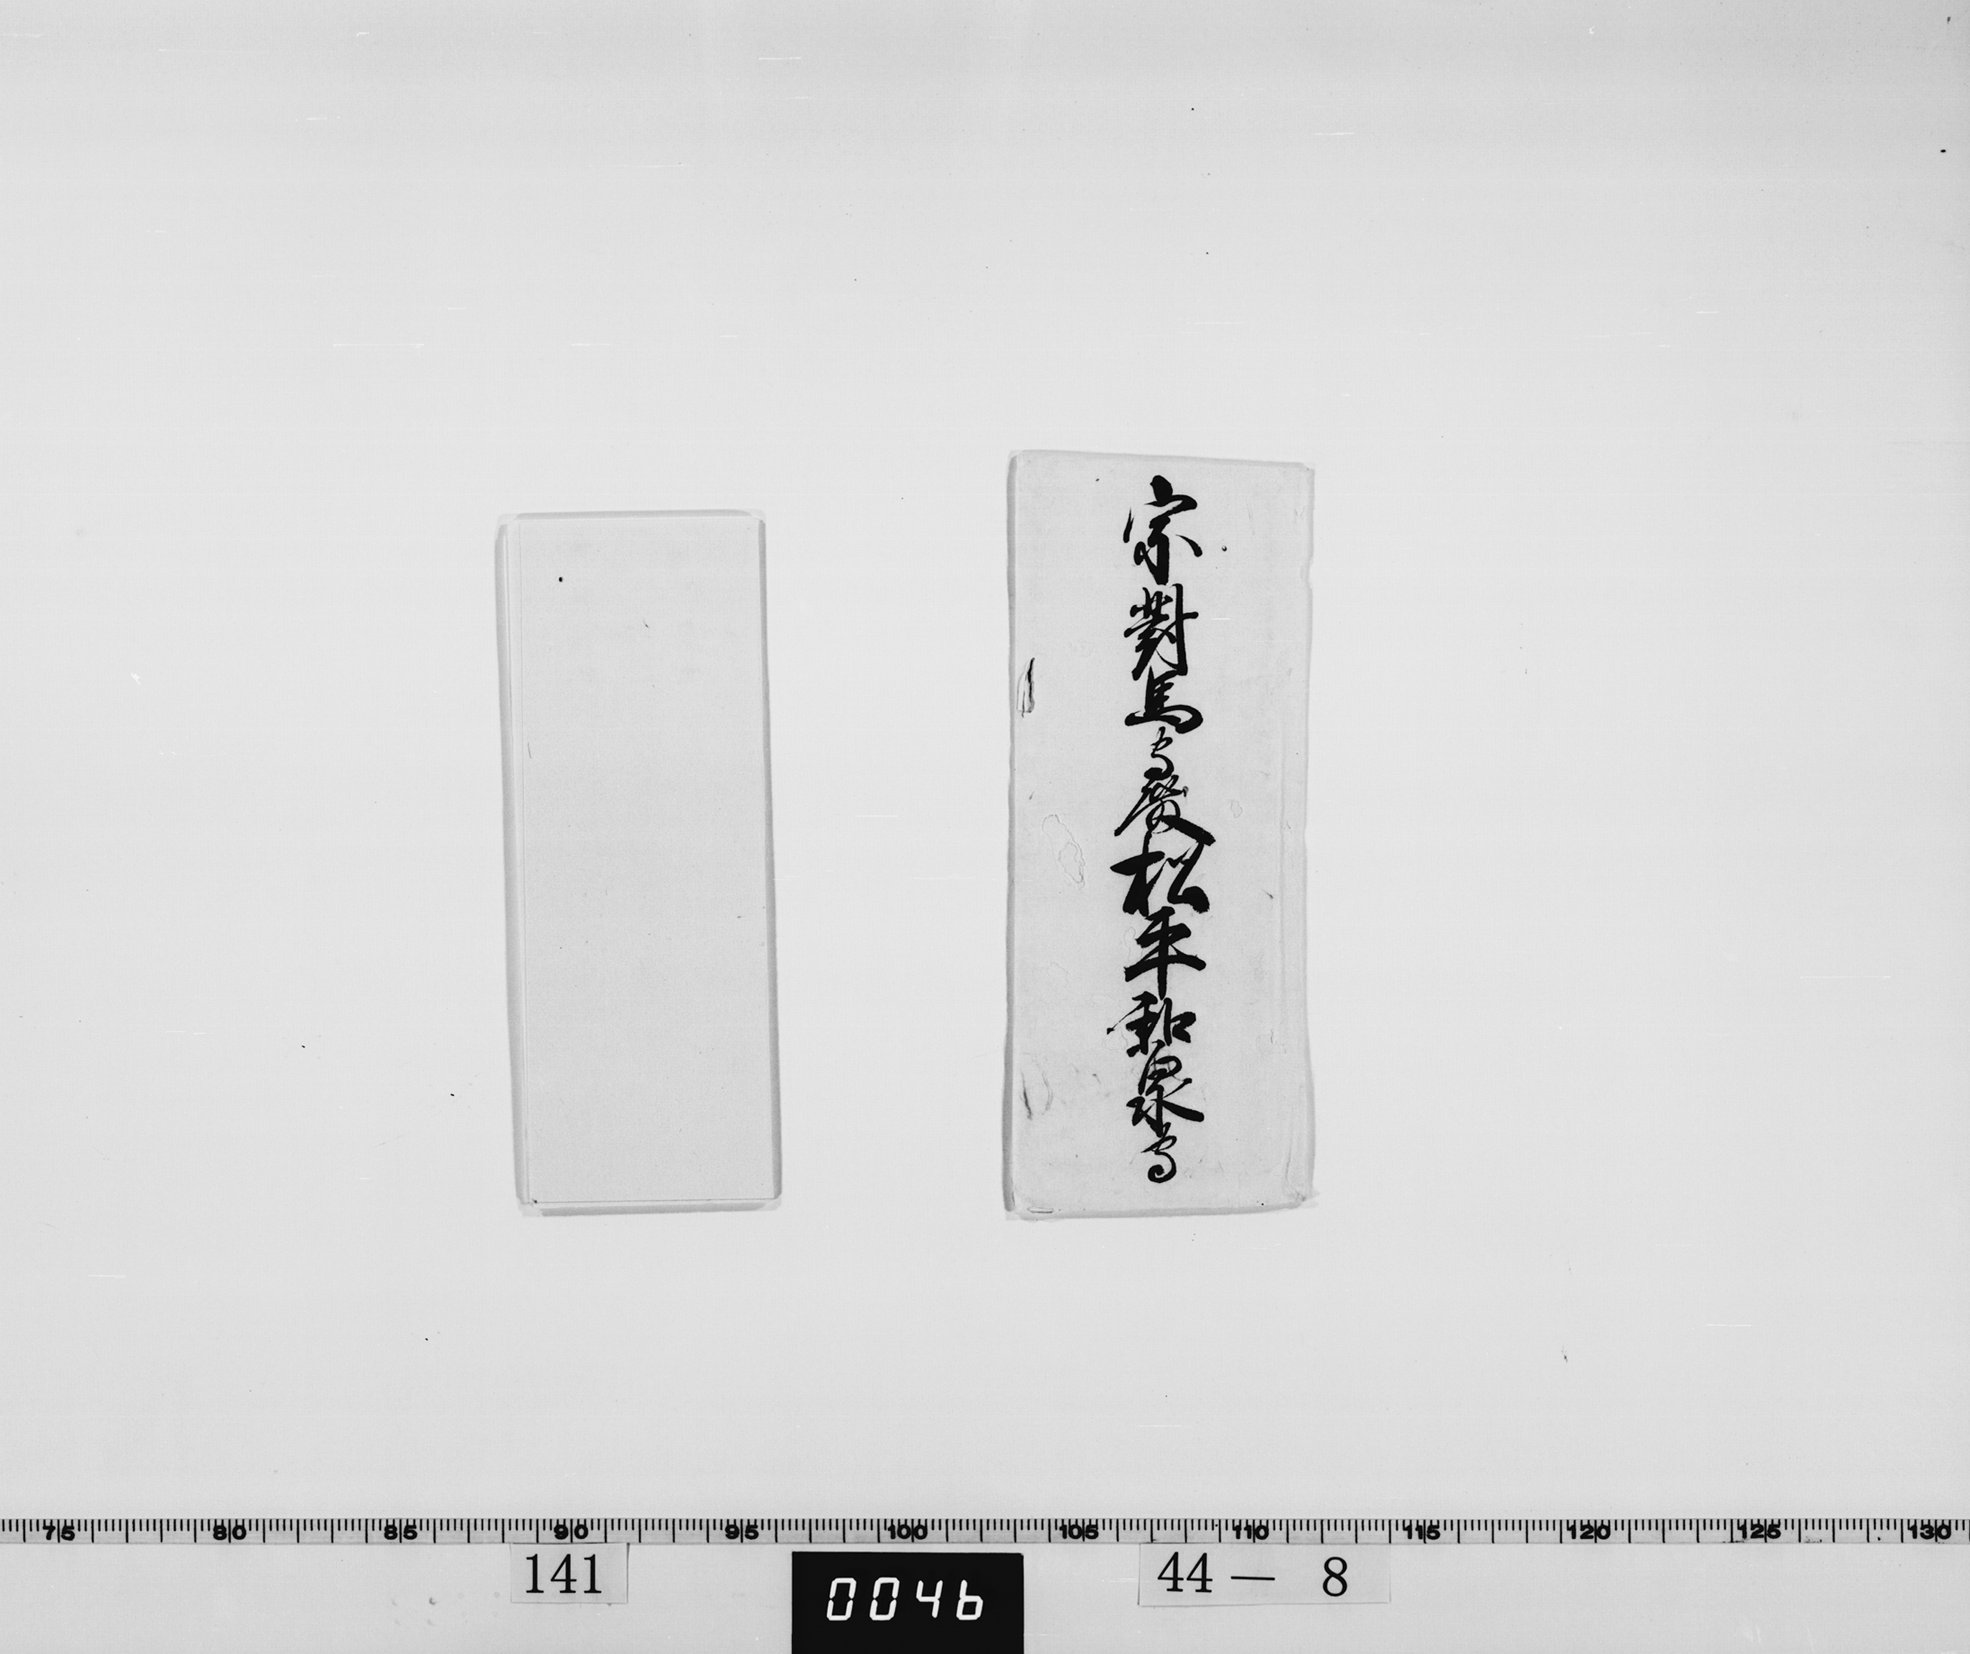 宗對馬守殿松平和泉守
75 80 85 90 95 100 105 110 115 120 125 130
141
0046
44— 8